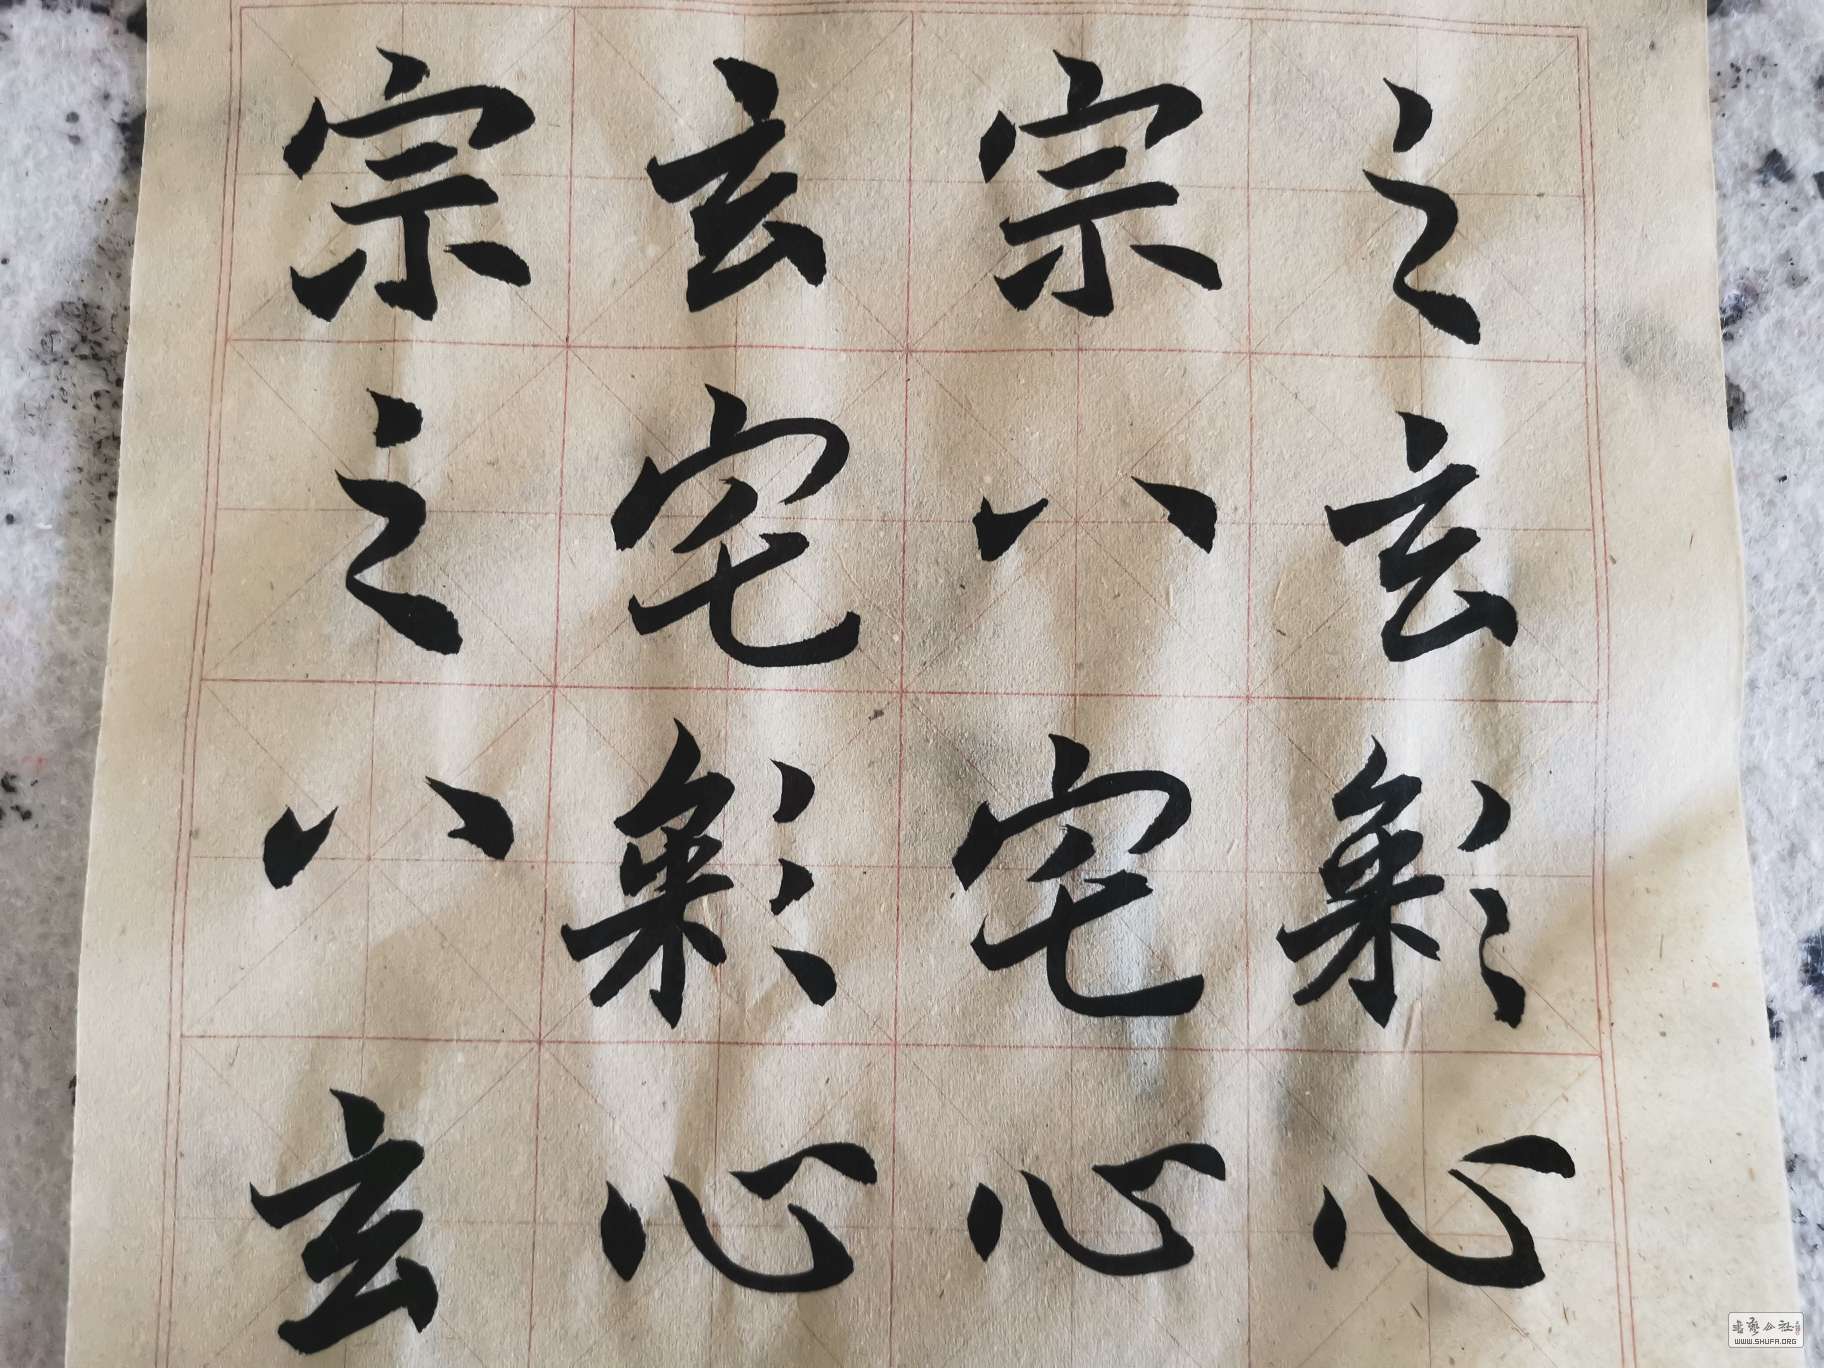 之玄彩心
宗八宅心
玄宅彩心
宗之八玄
书艺公社
WWW.SHUFA.ORG